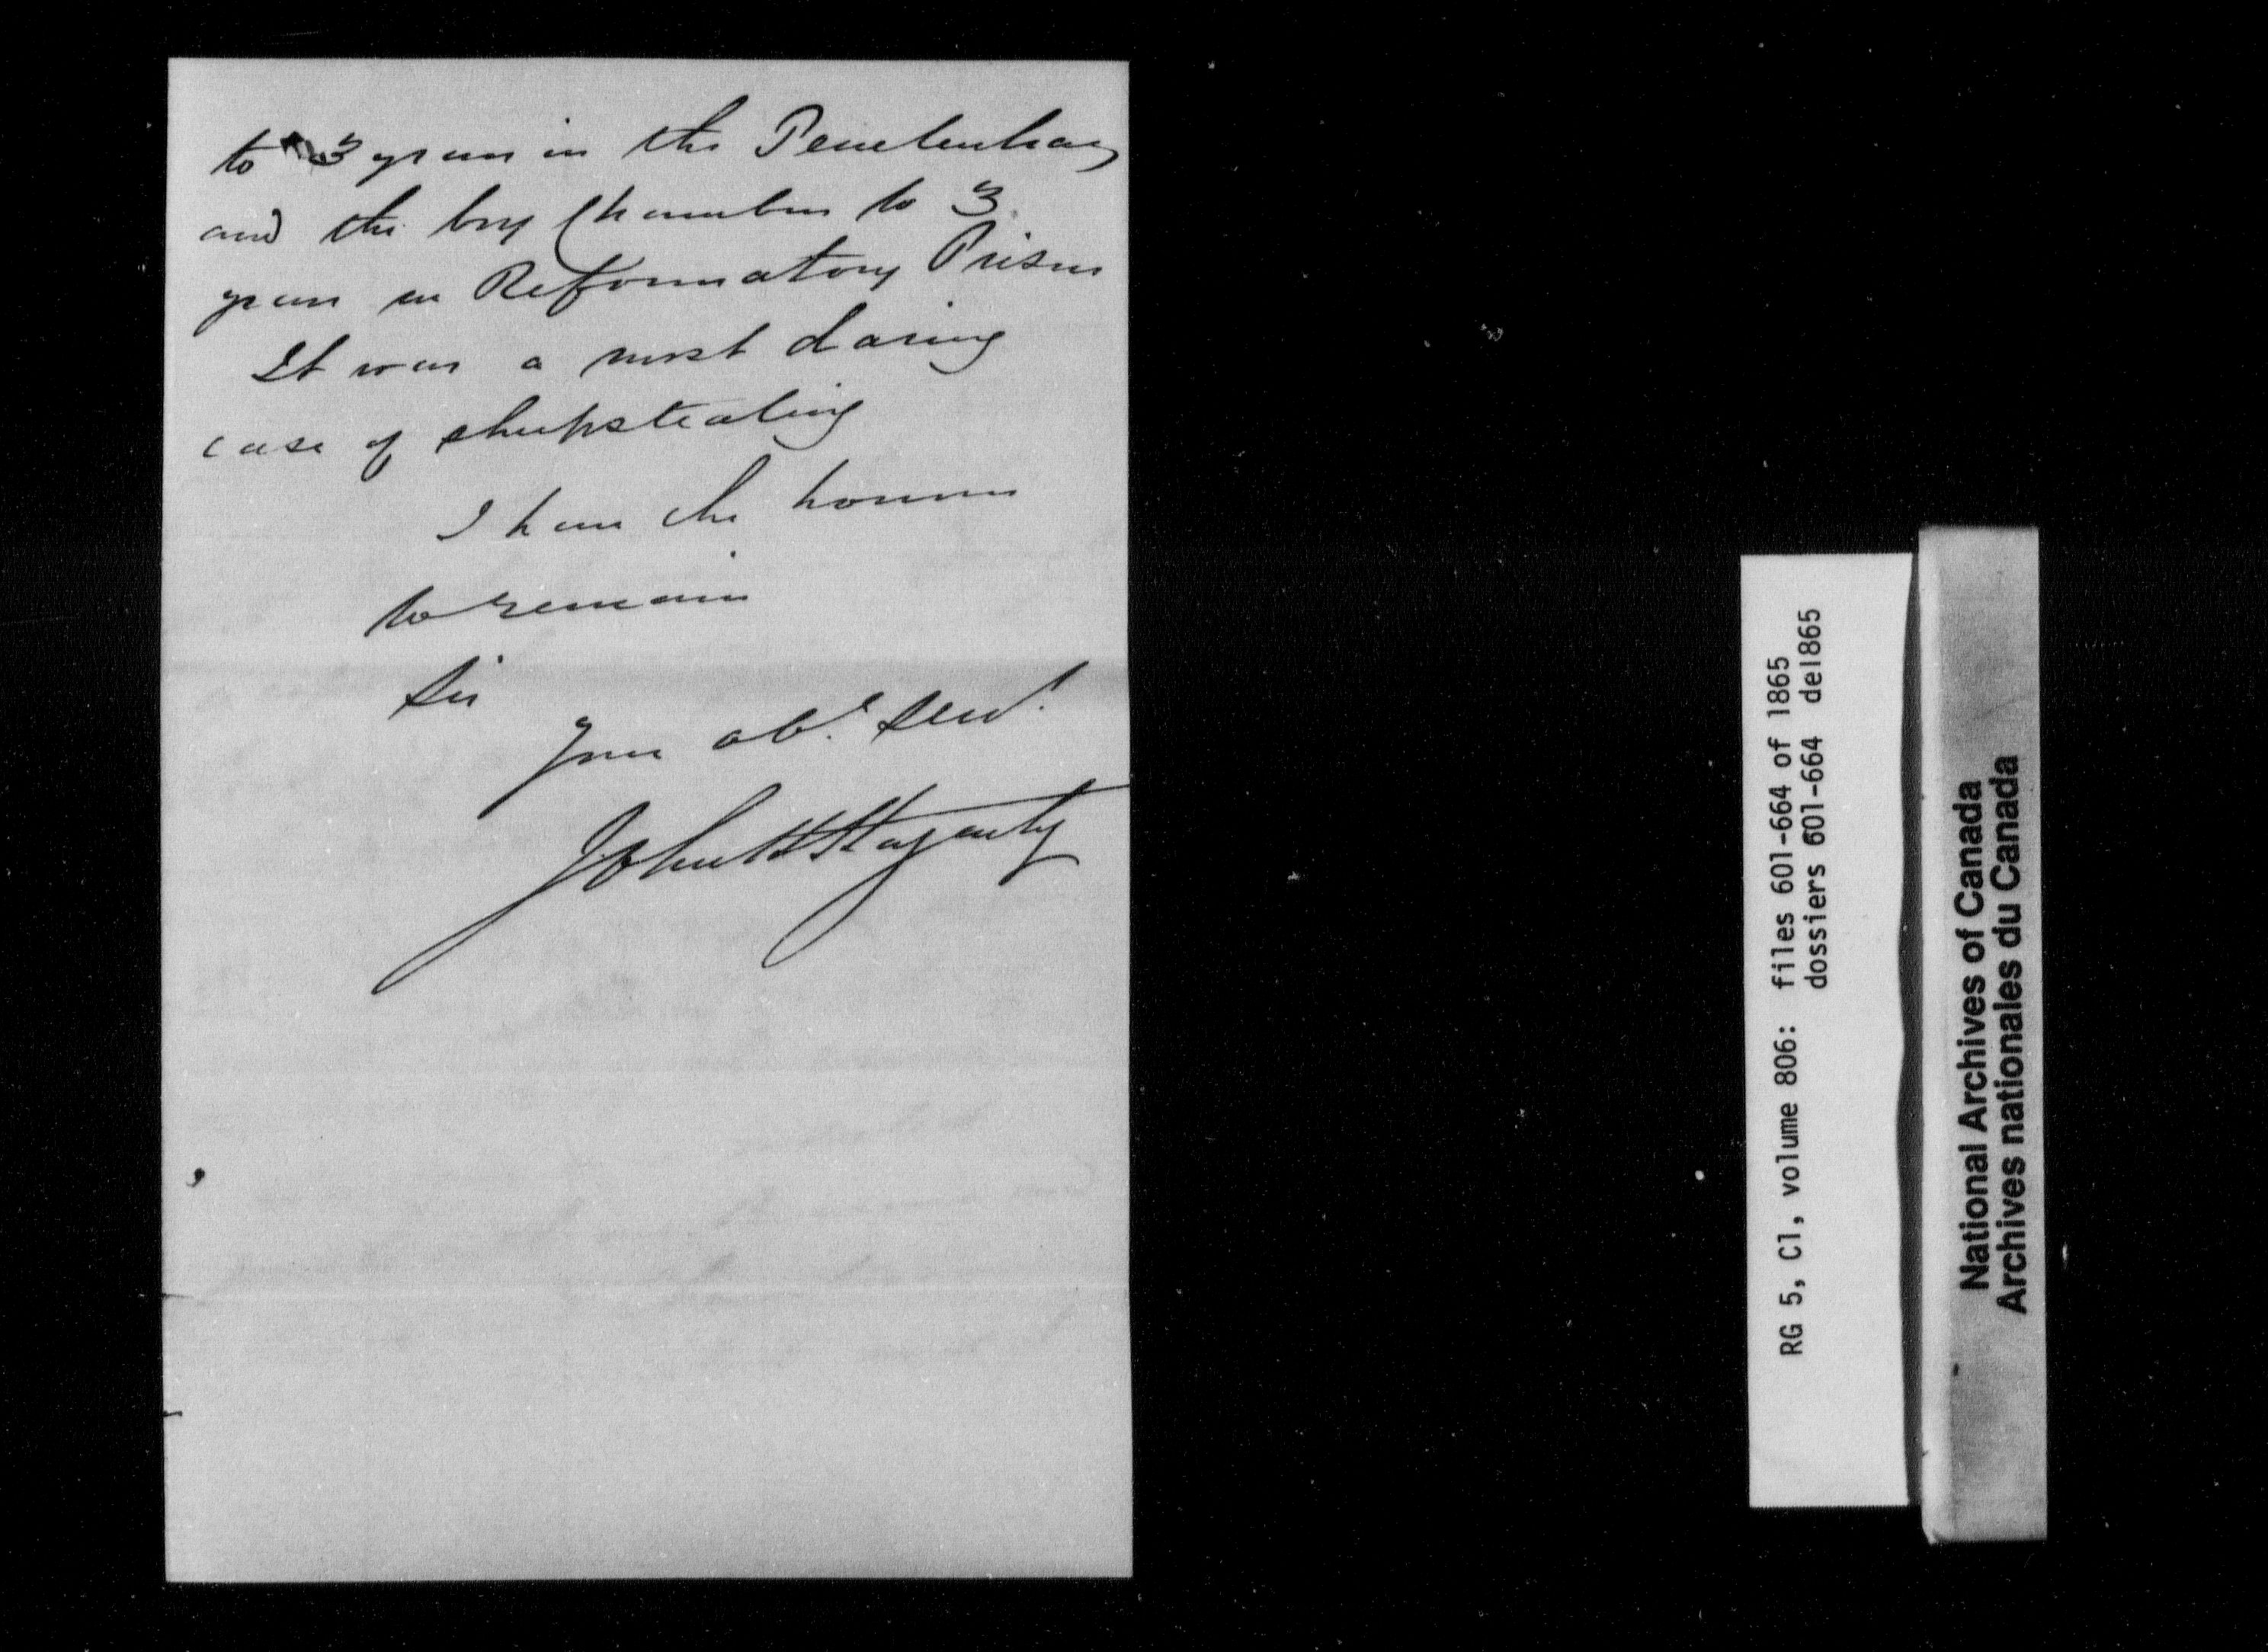 to 3 years in the Penetentiary
and the boy Chambers to 3
years in Reformatory Prison
It was a most daring
case of sheepstealing
I have the honour
to remain
Sir
Your obt. servt.
John H Hagarty
RG 5, C1, volume 806: files 601-664 of 1865
dossiers 601-664 de1865
National Archives of Canada
Archives nationales du Canada